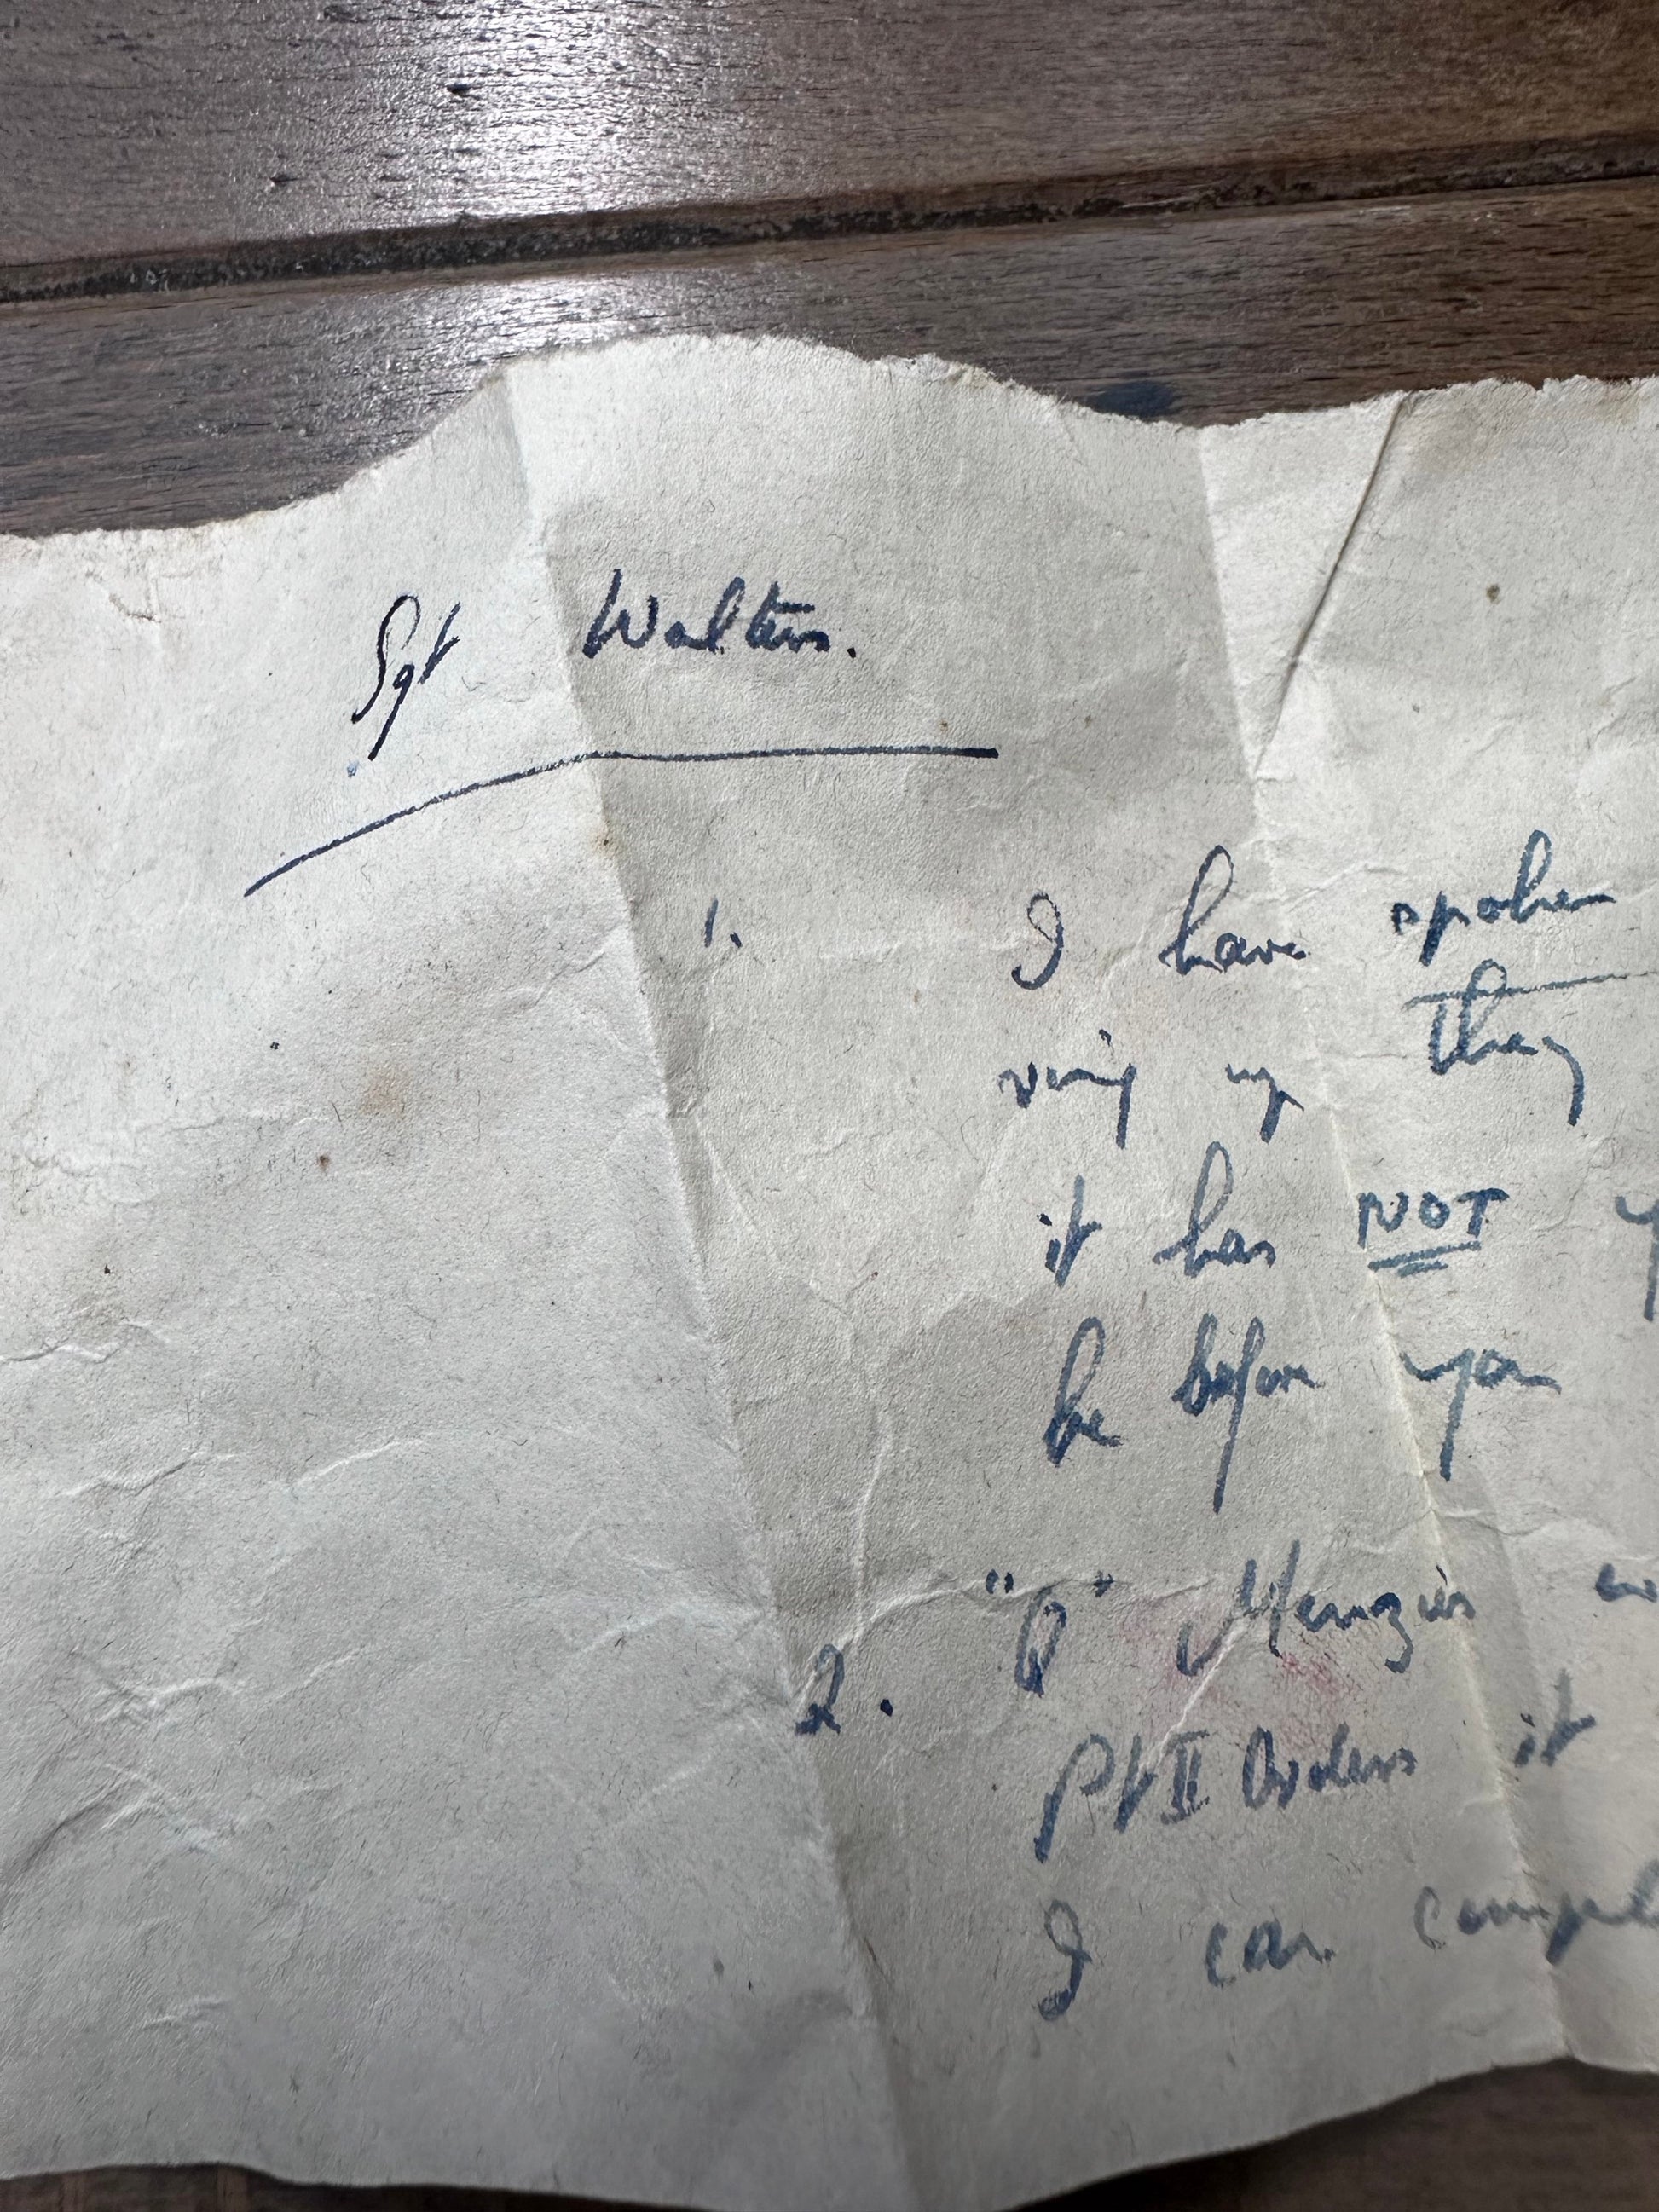 Sgt Walters.
1. I have spoken
ring up they
it has NOT
be before you
2. "Q" Menzies
Pt II Orders it
I can